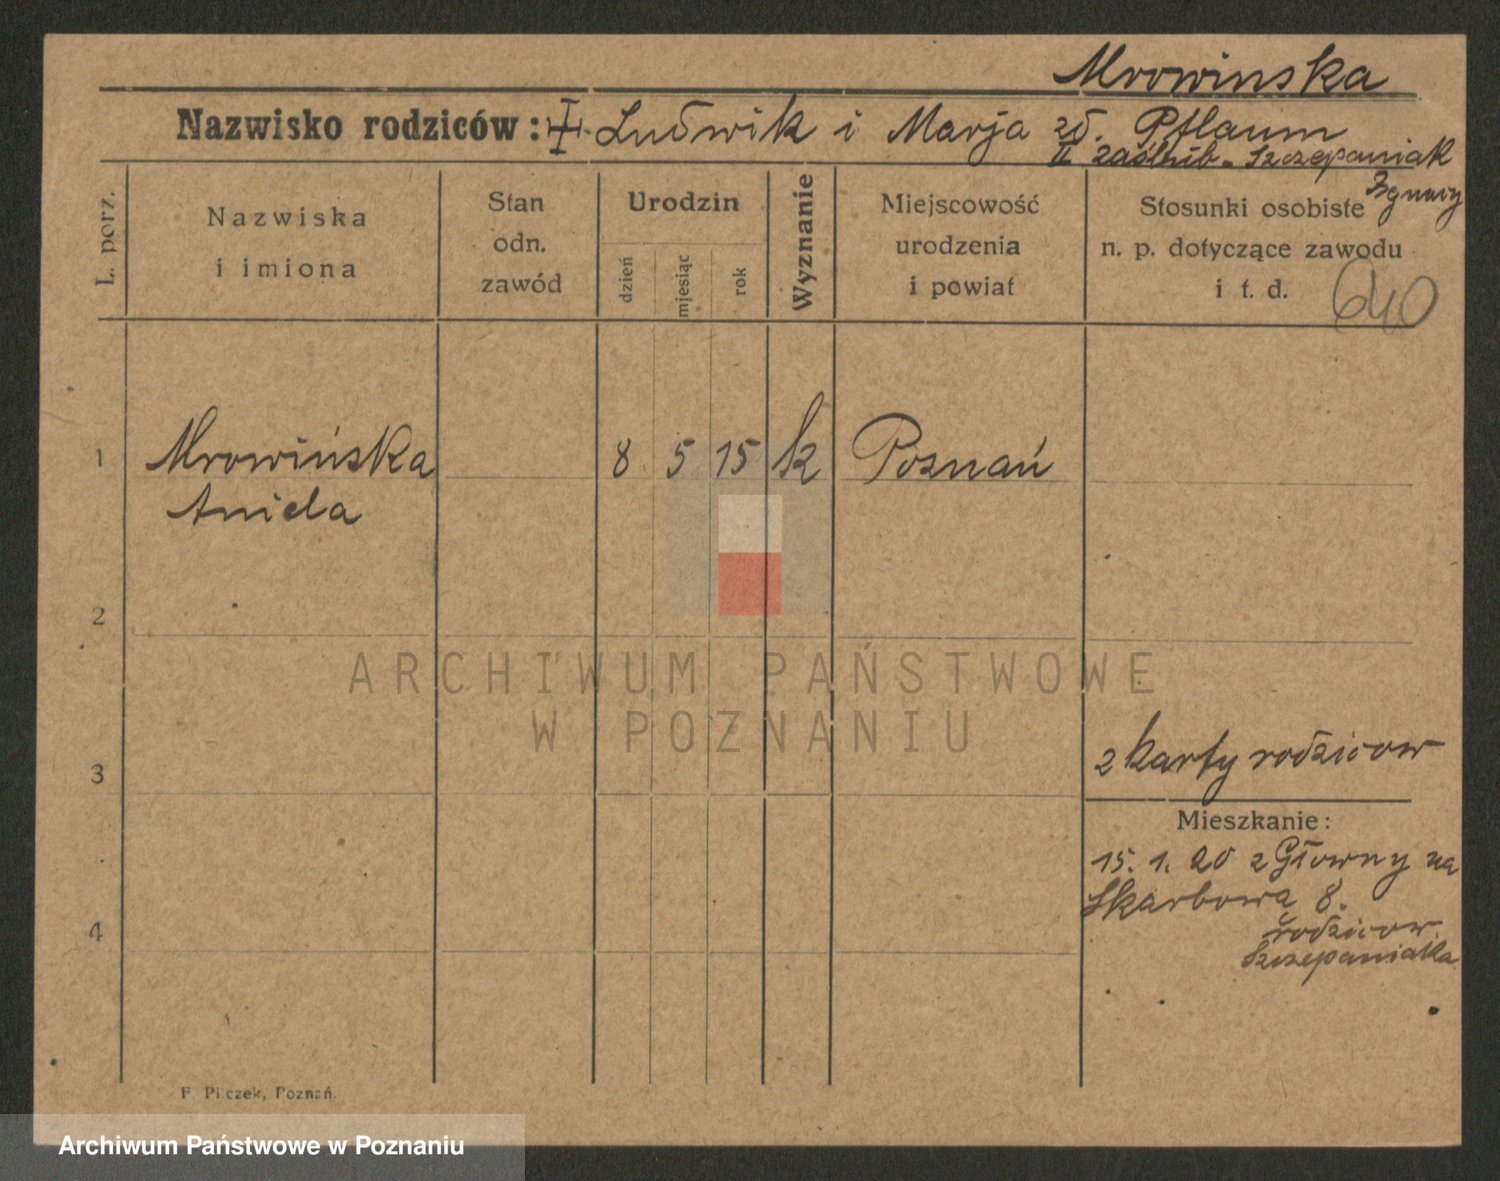 Mrowinska
Nazwisko rodziców: Ludwik i Marja zd. Pflaum
II zaślub. Szczepaniak
Ignacy
L. porz.
Nazwiska
i imiona
Stan
odn.
zawód
Urodzin
dzień
miesiąc
rok
Wyznanie
Miejscowość
urodzenia
i powiat
Stosunki osobiste
n. p. dotyczące zawodu
i t. d.
640
1 Mrowińska 8 5 15 k Poznań
Aniela
2
ARCHIWUM PAŃSTWOWE
W POZNANIU
3
z karty rodzicow
Mieszkanie:
15. 1. 20 z Głowny na
Skarbowa 8.
rodzicow
Szczepaniaka
4
F. Pilczek, Poznań.
Archiwum Państwowe w Poznaniu